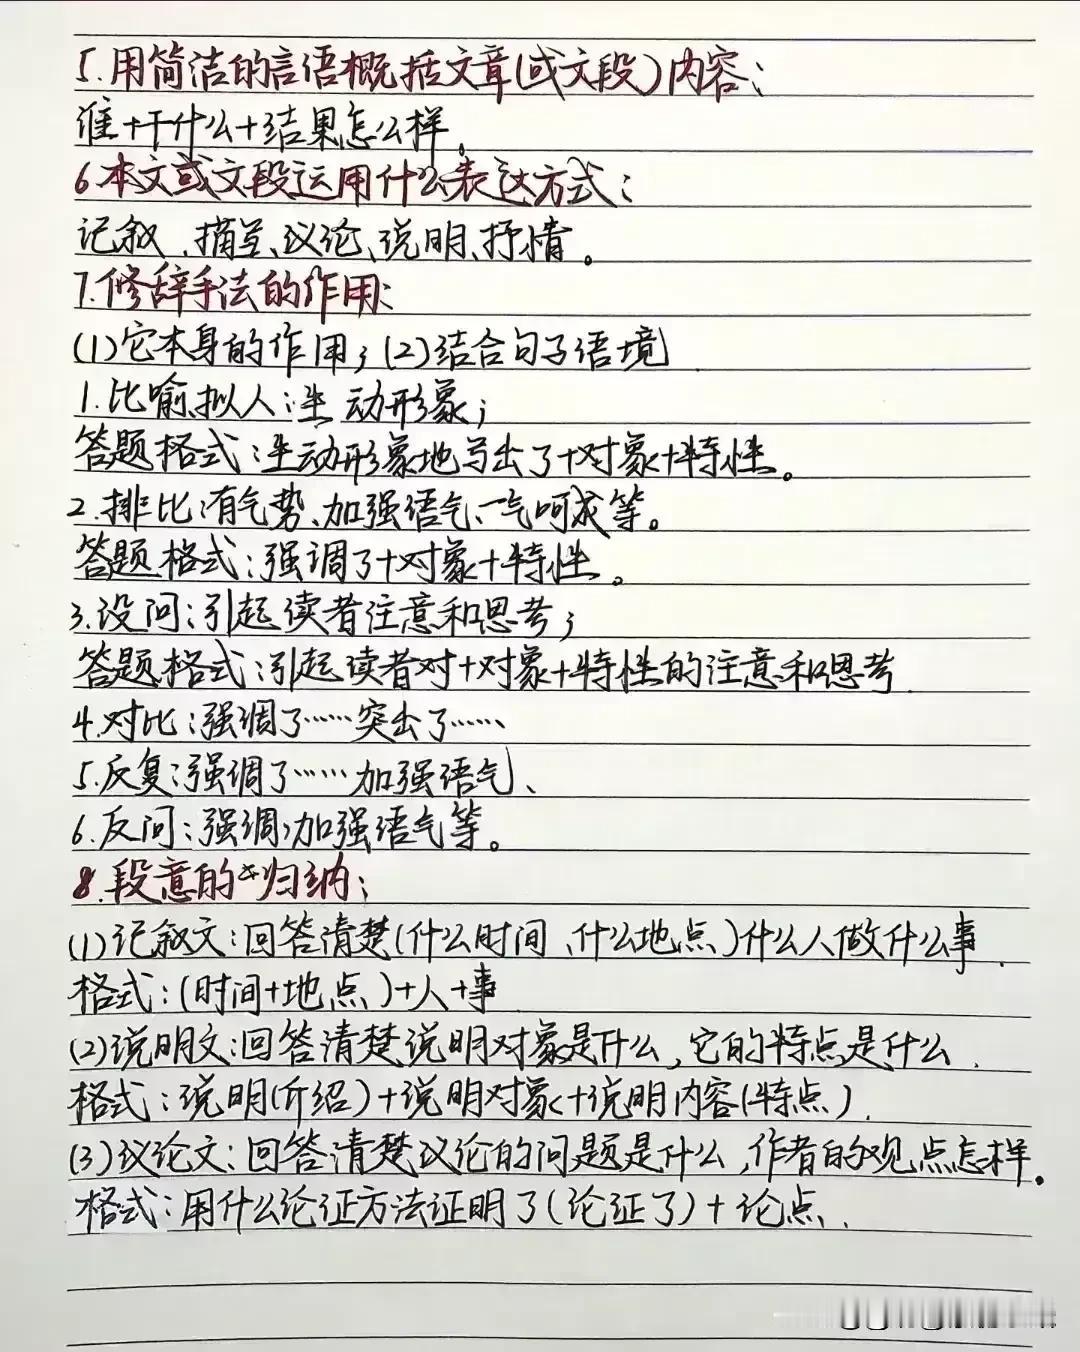 5.用简洁的言语概括文章(或文段)内容:
谁+干什么+结果怎么样。
6.本文或文段运用什么表达方式:
记叙、描写、议论、说明、抒情。
7.修辞手法的作用:
(1)它本身的作用;(2)结合句子语境
1.比喻、拟人:生动形象;
答题格式:生动形象地写出了+对象+特性。
2.排比:有气势、加强语气、一气呵成等。
答题格式:强调了+对象+特性。
3.设问:引起读者注意和思考;
答题格式:引起读者对+对象+特性的注意和思考.
4.对比:强调了……突出了……
5.反复:强调了……加强语气、
6.反问:强调,加强语气等。
8.段意的归纳:
(1)记叙文:回答清楚(什么时间、什么地点)什么人做什么事.
格式:(时间+地点)+人+事.
(2)说明文:回答清楚说明对象是什么,它的特点是什么.
格式:说明(介绍)+说明对象+说明内容(特点).
(3)议论文:回答清楚议论的问题是什么,作者的观点怎样。
格式:用什么论证方法证明了(论证了)+论点.